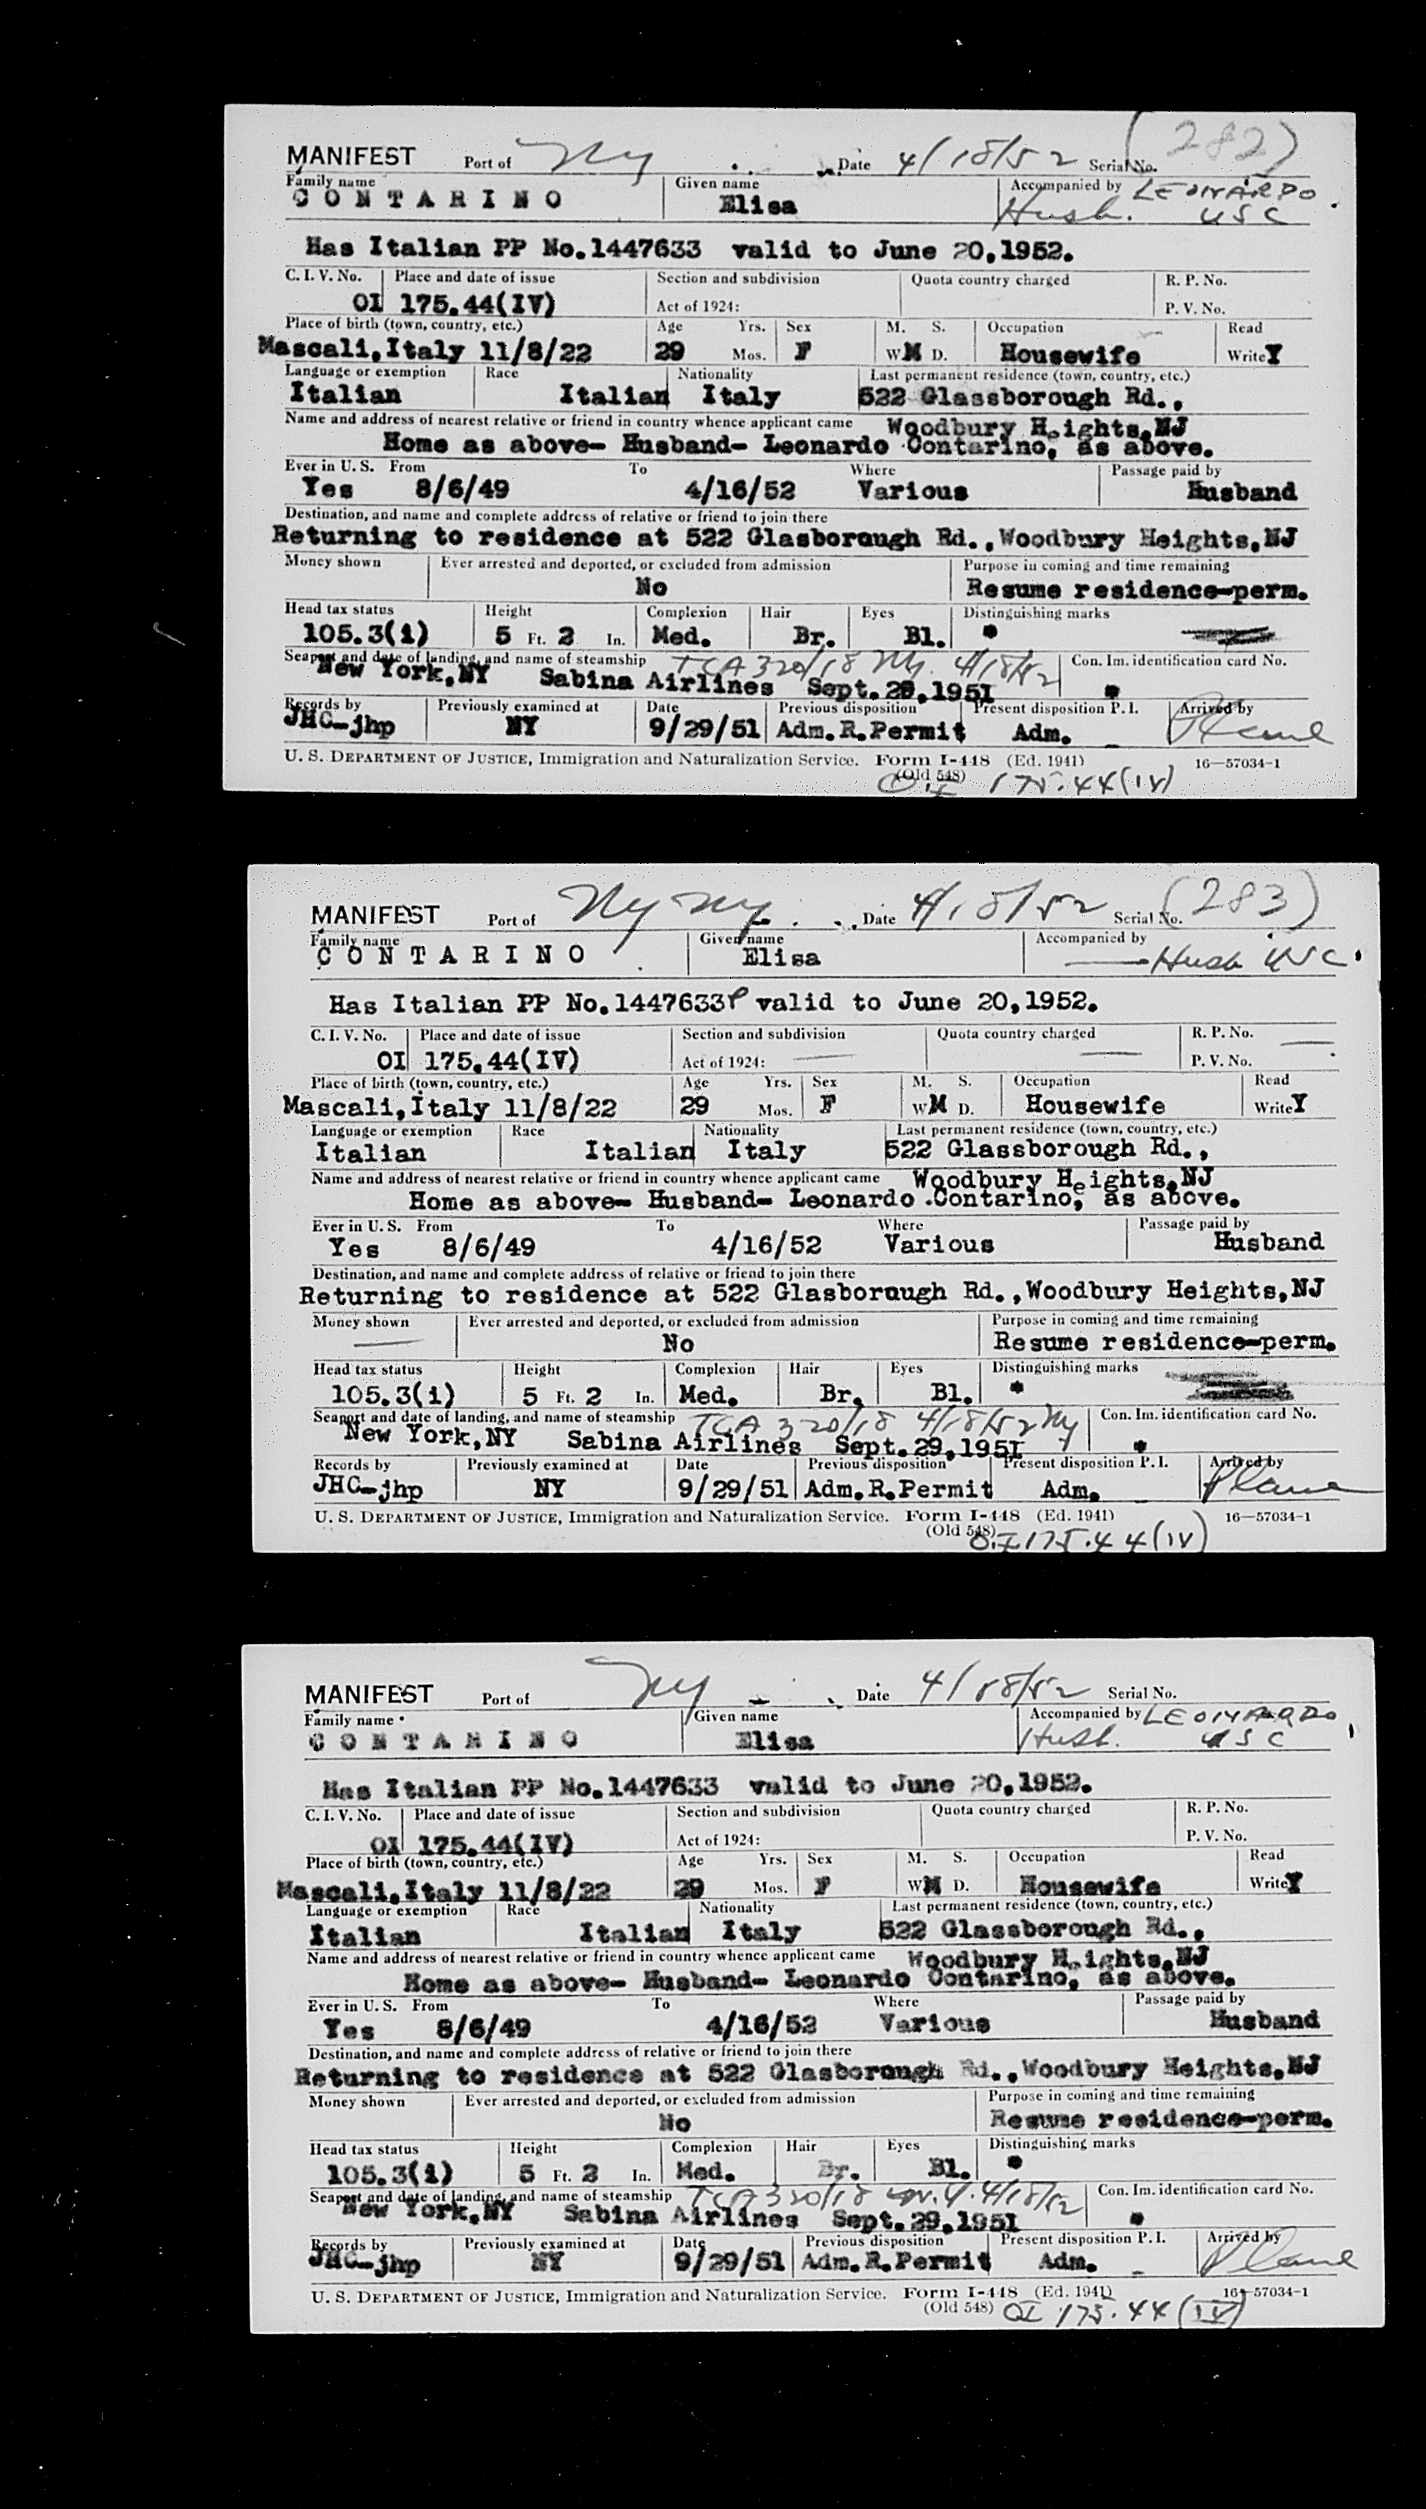 (282)
MANIFEST Port of NY Date 4/18/52 Serial No.
Family name Given name Accompanied by LEONARDO
CONTARINO Elisa Husb. USC
Has Italian PP No.1447633 valid to June 20,1952.
C. I. V. No. Place and date of issue Section and subdivision Quota country charged R. P. No.
OI 175.44(IV) Act of 1924: P. V. No.
Place of birth (town, country, etc.) Age Yrs. Sex M. S. Occupation Read
Mascali,Italy 11/8/22 29 Mos. F W M D. Housewife Write Y
Language or exemption Race Nationality Last permanent residence (town, country, etc.)
Italian Italian Italy 522 Glassborough Rd.,
Name and address of nearest relative or friend in country whence applicant came Woodbury Heights,NJ
Home as above- Husband- Leonardo Contarino, as above.
Ever in U. S. From To Where Passage paid by
Yes 8/6/49 4/16/52 Various Husband
Destination, and name and complete address of relative or friend to join there
Returning to residence at 522 Glasborough Rd.,Woodbury Heights,NJ
Money shown Ever arrested and deported, or excluded from admission Purpose in coming and time remaining
No Resume residence-perm.
Head tax status Height Complexion Hair Eyes Distinguishing marks
105.3(i) 5 Ft. 2 In. Med. Br. Bl. *
Seaport and date of landing, and name of steamship TCA 320/18 NY. 4/18/52 Con. Im. identification card No.
New York,NY Sabina Airlines Sept.29,1951 *
Records by Previously examined at Date Previous disposition Present disposition P. I. Arrived by
JHC-jhp NY 9/29/51 Adm.R.Permit Adm. Plane
U. S. DEPARTMENT OF JUSTICE, Immigration and Naturalization Service. Form I-448 (Ed. 1941) 16—57034-1
(Old 548)
O.I 175.44(IV)
MANIFEST Port of NY NY Date 4/18/52 Serial No. (283)
Family name Given name Accompanied by
CONTARINO Elisa Husb USC.
Has Italian PP No.1447633 valid to June 20,1952.
C. I. V. No. Place and date of issue Section and subdivision Quota country charged R. P. No.
OI 175.44(IV) Act of 1924: P. V. No.
Place of birth (town, country, etc.) Age Yrs. Sex M. S. Occupation Read
Mascali,Italy 11/8/22 29 Mos. F W M D. Housewife Write Y
Language or exemption Race Nationality Last permanent residence (town, country, etc.)
Italian Italian Italy 522 Glassborough Rd.,
Name and address of nearest relative or friend in country whence applicant came Woodbury Heights,NJ
Home as above- Husband- Leonardo Contarino, as above.
Ever in U. S. From To Where Passage paid by
Yes 8/6/49 4/16/52 Various Husband
Destination, and name and complete address of relative or friend to join there
Returning to residence at 522 Glasborough Rd.,Woodbury Heights,NJ
Money shown Ever arrested and deported, or excluded from admission Purpose in coming and time remaining
No Resume residence-perm.
Head tax status Height Complexion Hair Eyes Distinguishing marks
105.3(i) 5 Ft. 2 In. Med. Br. Bl. *
Seaport and date of landing, and name of steamship TCA 320/18 4/18/52 NY Con. Im. identification card No.
New York,NY Sabina Airlines Sept.29,1951 *
Records by Previously examined at Date Previous disposition Present disposition P. I. Arrived by
JHC-jhp NY 9/29/51 Adm.R.Permit Adm. Plane
U. S. DEPARTMENT OF JUSTICE, Immigration and Naturalization Service. Form I-448 (Ed. 1941) 16—57034-1
(Old 548)
O.I 175.44(IV)
MANIFEST Port of NY Date 4/18/52 Serial No.
Family name Given name Accompanied by LEONARDO
CONTARINO Elisa Husb. USC
Has Italian PP No.1447633 valid to June 20,1952.
C. I. V. No. Place and date of issue Section and subdivision Quota country charged R. P. No.
OI 175.44(IV) Act of 1924: P. V. No.
Place of birth (town, country, etc.) Age Yrs. Sex M. S. Occupation Read
Mascali,Italy 11/8/22 29 Mos. F W M D. Housewife Write Y
Language or exemption Race Nationality Last permanent residence (town, country, etc.)
Italian Italian Italy 522 Glassborough Rd.,
Name and address of nearest relative or friend in country whence applicant came Woodbury Heights,NJ
Home as above- Husband- Leonardo Contarino, as above.
Ever in U. S. From To Where Passage paid by
Yes 8/6/49 4/16/52 Various Husband
Destination, and name and complete address of relative or friend to join there
Returning to residence at 522 Glasborough Rd.,Woodbury Heights,NJ
Money shown Ever arrested and deported, or excluded from admission Purpose in coming and time remaining
No Resume residence-perm.
Head tax status Height Complexion Hair Eyes Distinguishing marks
105.3(i) 5 Ft. 2 In. Med. Br. Bl. *
Seaport and date of landing, and name of steamship TCA 320/18 N.Y. 4/18/52 Con. Im. identification card No.
New York,NY Sabina Airlines Sept.29,1951 *
Records by Previously examined at Date Previous disposition Present disposition P. I. Arrived by
JHC-jhp NY 9/29/51 Adm.R.Permit Adm. Plane
U. S. DEPARTMENT OF JUSTICE, Immigration and Naturalization Service. Form I-448 (Ed. 1941) 16—57034-1
(Old 548) OI 175.44(IV)